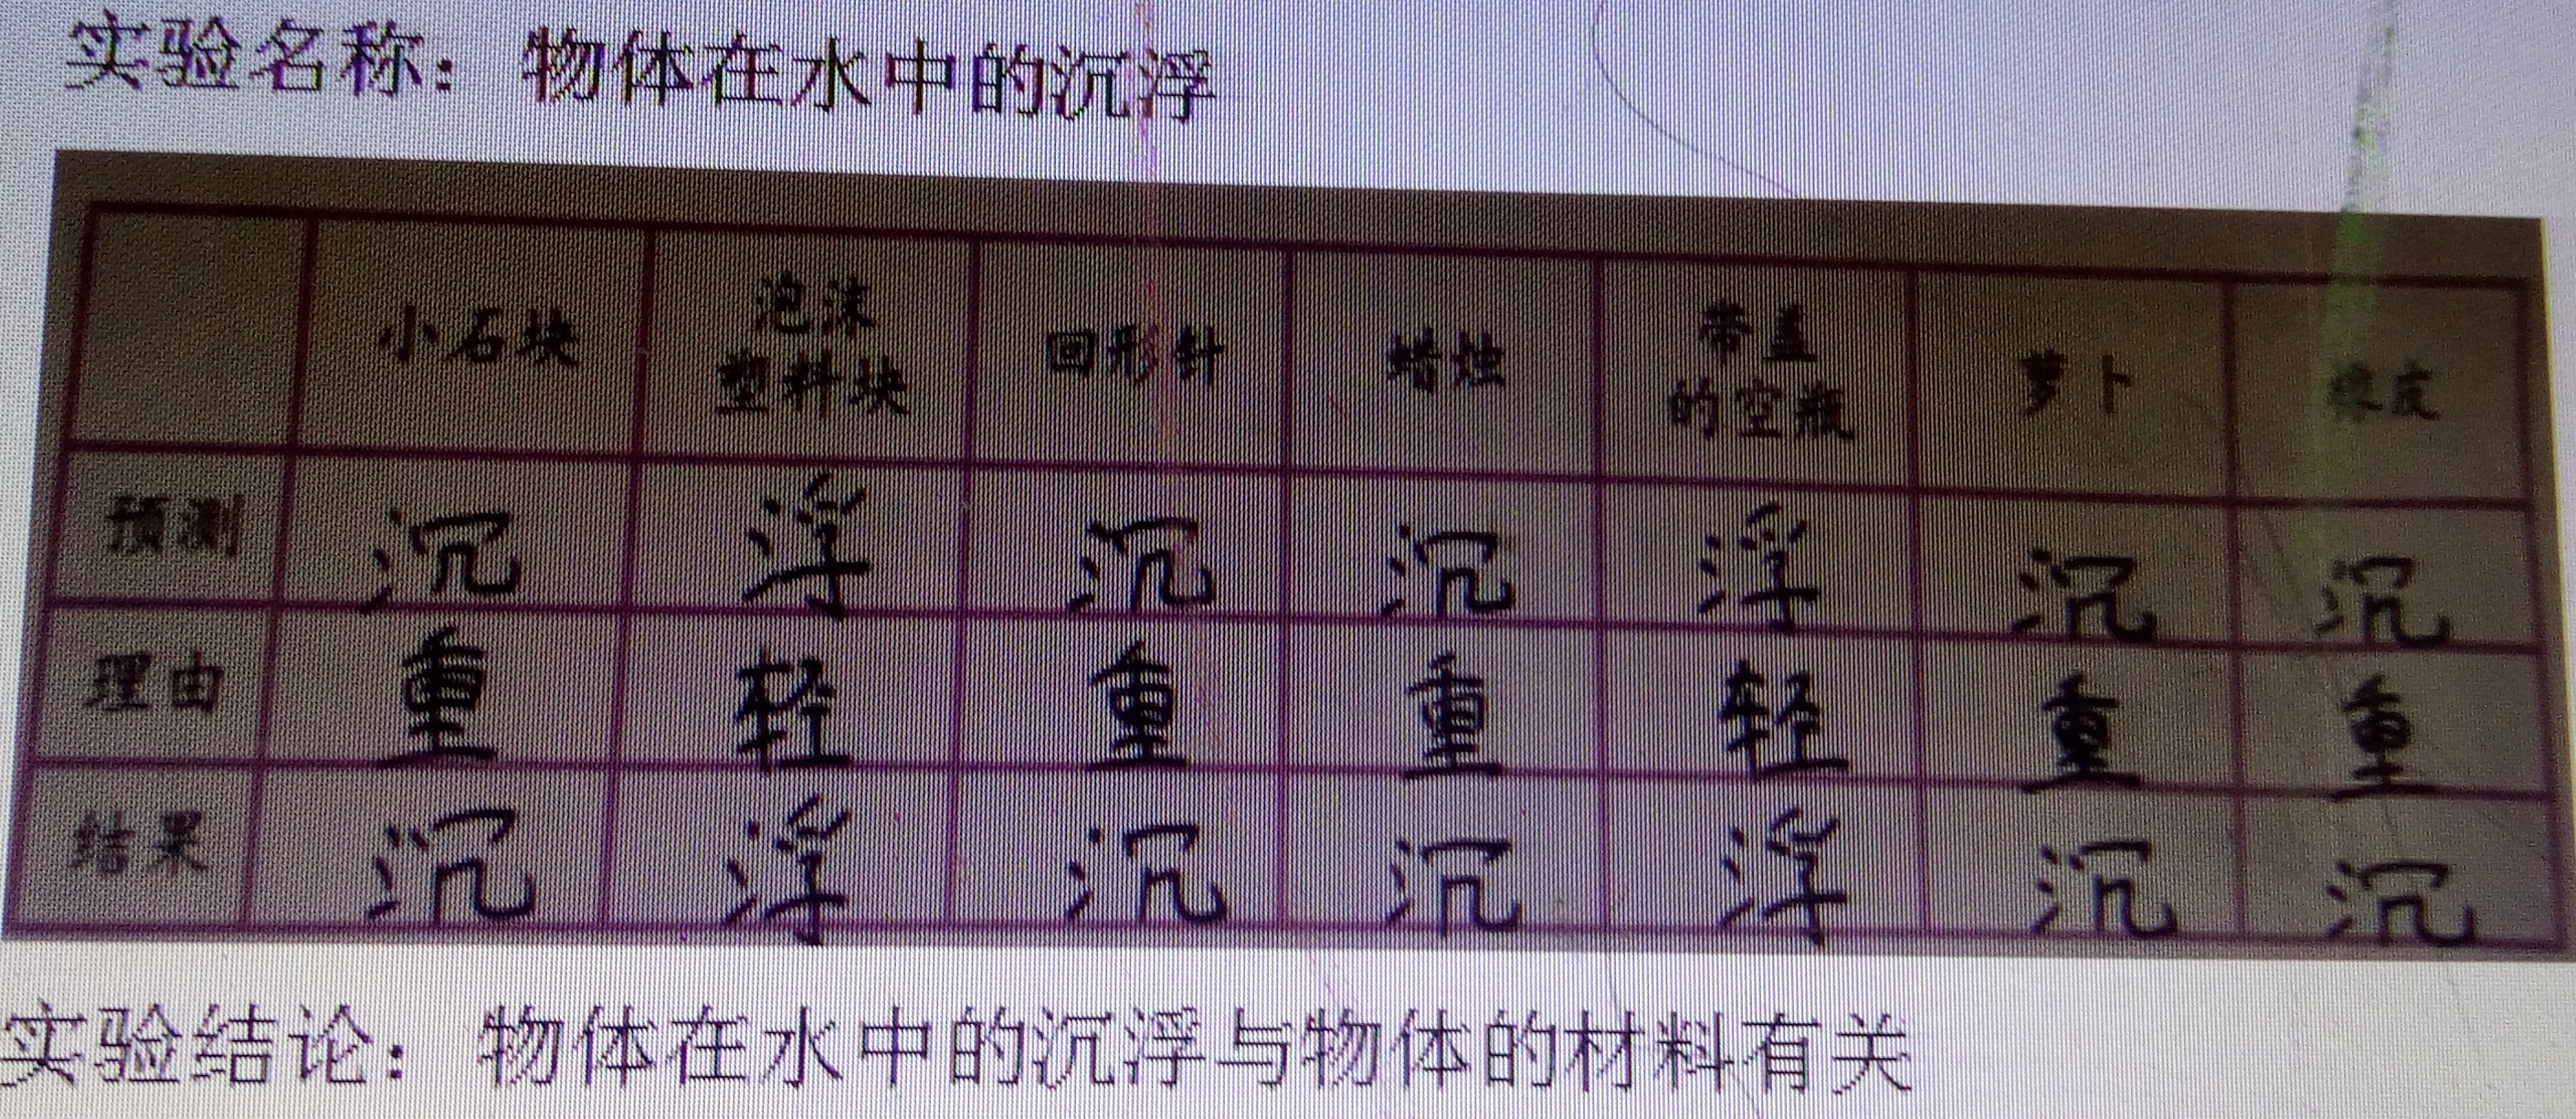 实验名称：物体在水中的沉浮
小石块 泡沫塑料块 回形针 蜡烛 带盖的空瓶 萝卜 橡皮
预测 沉 浮 沉 沉 浮 沉 沉
理由 重 轻 重 重 轻 重 重
结果 沉 浮 沉 沉 浮 沉 沉
实验结论：物体在水中的沉浮与物体的材料有关